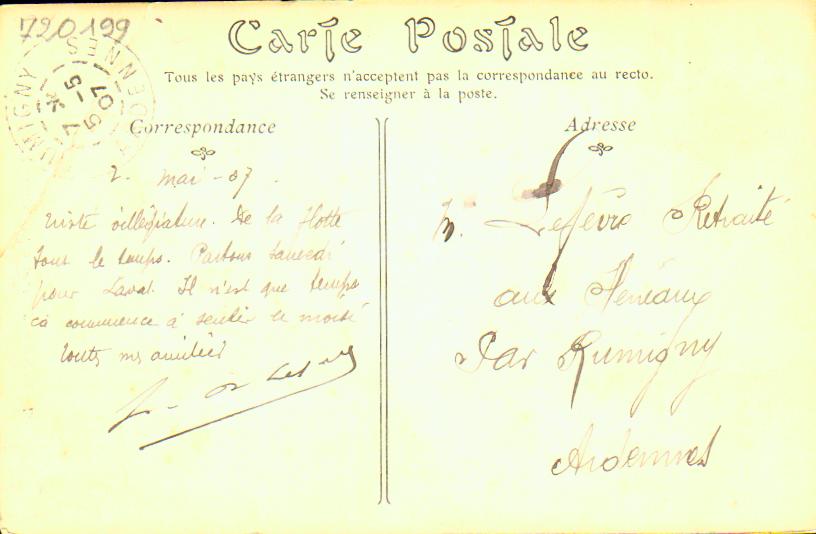 720199
Carte Postale
Tous les pays étrangers n'acceptent pas la correspondance au recto.
Se renseigner à la poste.
RUMIGNY
ARDENNES
5 - 5
07
Correspondance
2. mai - 07.
Triste villégiature. De la flotte
tout le temps. Partons samedi
pour Laval. Il n'est que temps
ça commence à sentir le moisi
Toutes mes amitiés
Adresse
M. Lefèvre Retraité
aux
Par Rumigny
Ardennes